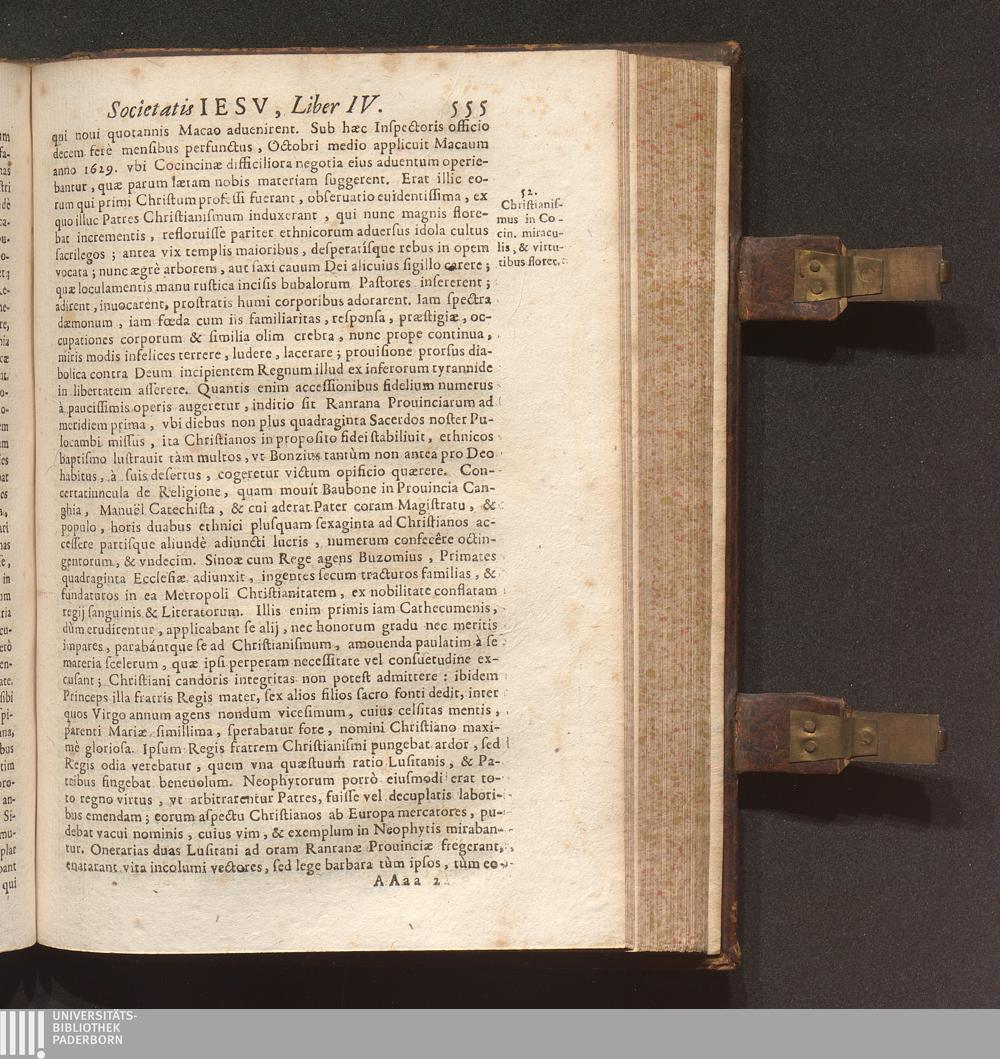 Societatis IESV, Liber IV. 555
qui noui quotannis Macao aduenirent. Sub hæc Inspectoris officio
decem ferè mensibus perfunctus, Octobri medio applicuit Macaum
anno 1629. vbi Cocincinæ difficiliora negotia eius aduentum operie-
bantur, quæ parum lætam nobis materiam suggerent. Erat illic eo-
rum qui primi Christum professi fuerant, obseruatio euidentissima, ex
quo illuc Patres Christianismum induxerant, qui nunc magnis flore-
bat incrementis, refloruisse pariter ethnicorum aduersus idola cultus
sacrilegos; antea vix templis maioribus, desperatisque rebus in opem
vocata; nunc ægrè arborem, aut saxi cauum Dei alicuius sigillo carere;
quæ loculamentis manu rustica incisis bubalorum Pastores insererent;
adirent, inuocarent, prostratis humi corporibus adorarent. Iam spectra
dæmonum, iam fœda cum iis familiaritas, responsa, præstigiæ, oc-
cupationes corporum & similia olim crebra, nunc prope continua,
miris modis infelices terrere, ludere, lacerare; prouisione prorsus dia-
bolica contra Deum incipientem Regnum illud ex inferorum tyrannide
in libertatem asserere. Quantis enim accessionibus fidelium numerus
à paucissimis operis augeretur, inditio sit Ranrana Prouinciarum ad
meridiem prima, vbi diebus non plus quadraginta Sacerdos noster Pu-
locambi missus, ita Christianos in proposito fidei stabiliuit, ethnicos
baptismo lustrauit tàm multos, vt Bonzius tantùm non antea pro Deo
habitus, à suis desertus, cogeretur victum opificio quærere. Con-
certatiuncula de Religione, quam mouit Baubone in Prouincia Can-
ghia, Manuël Catechista, & cui aderat Pater coram Magistratu, &
populo, horis duabus ethnici plusquam sexaginta ad Christianos ac-
cessere partisque aliundè adiuncti lucris, numerum confecêre octin-
gentorum, & vndecim. Sinoæ cum Rege agens Buzomius, Primates
quadraginta Ecclesiæ adiunxit, ingentes secum tracturos familias, &
fundaturos in ea Metropoli Christianitatem, ex nobilitate conflatam
regij sanguinis & Literatorum. Illis enim primis iam Cathecumenis,
dùm erudirentur, applicabant se alij, nec honorum gradu nec meritis
impares, parabántque se ad Christianismum, amouenda paulatim à se
materia scelerum, quæ ipsi perperam necessitate vel consuetudine ex-
cusant; Christiani candoris integritas non potest admittere: ibidem
Princeps illa fratris Regis mater, sex alios filios sacro fonti dedit, inter
quos Virgo annum agens nondum vicesimum, cuius celsitas mentis,
parenti Mariæ simillima, sperabatur fore, nomini Christiano maxi-
mè gloriosa. Ipsum Regis fratrem Christianismi pungebat ardor, sed
Regis odia verebatur, quem vna quæstuum ratio Lusitanis, & Pa-
tribus fingebat beneuolum. Neophytorum porrò eiusmodi erat to-
to regno virtus, vt arbitrarentur Patres, fuisse vel decuplatis labori-
bus emendam; eorum aspectu Christianos ab Europa mercatores, pu-
debat vacui nominis, cuius vim, & exemplum in Neophytis miraban-
tur. Onerarias duas Lusitani ad oram Ranranæ Prouinciæ fregerant,
enatarant vita incolumi vectores, sed lege barbara tùm ipsos, tùm eo-
AAaa 2
52.
Christianis-
mus in Co-
cin. miracu-
lis, & virtu-
tibus floret.
UNIVERSITÄTS-
BIBLIOTHEK
PADERBORN